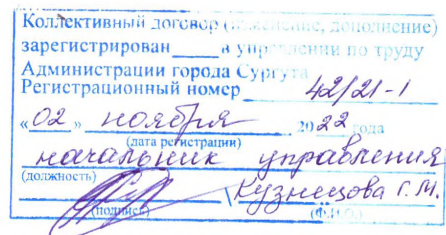 Коллективный договор (изменение, дополнение)
зарегистрирован ____ в управлении по труду
Администрации города Сургута
Регистрационный номер 42/21-1
«02» ноября 2022 года
(дата регистрации)
начальник управления
(должность)
Кузнецова Г.М.
(подпись) (Ф.И.О.)